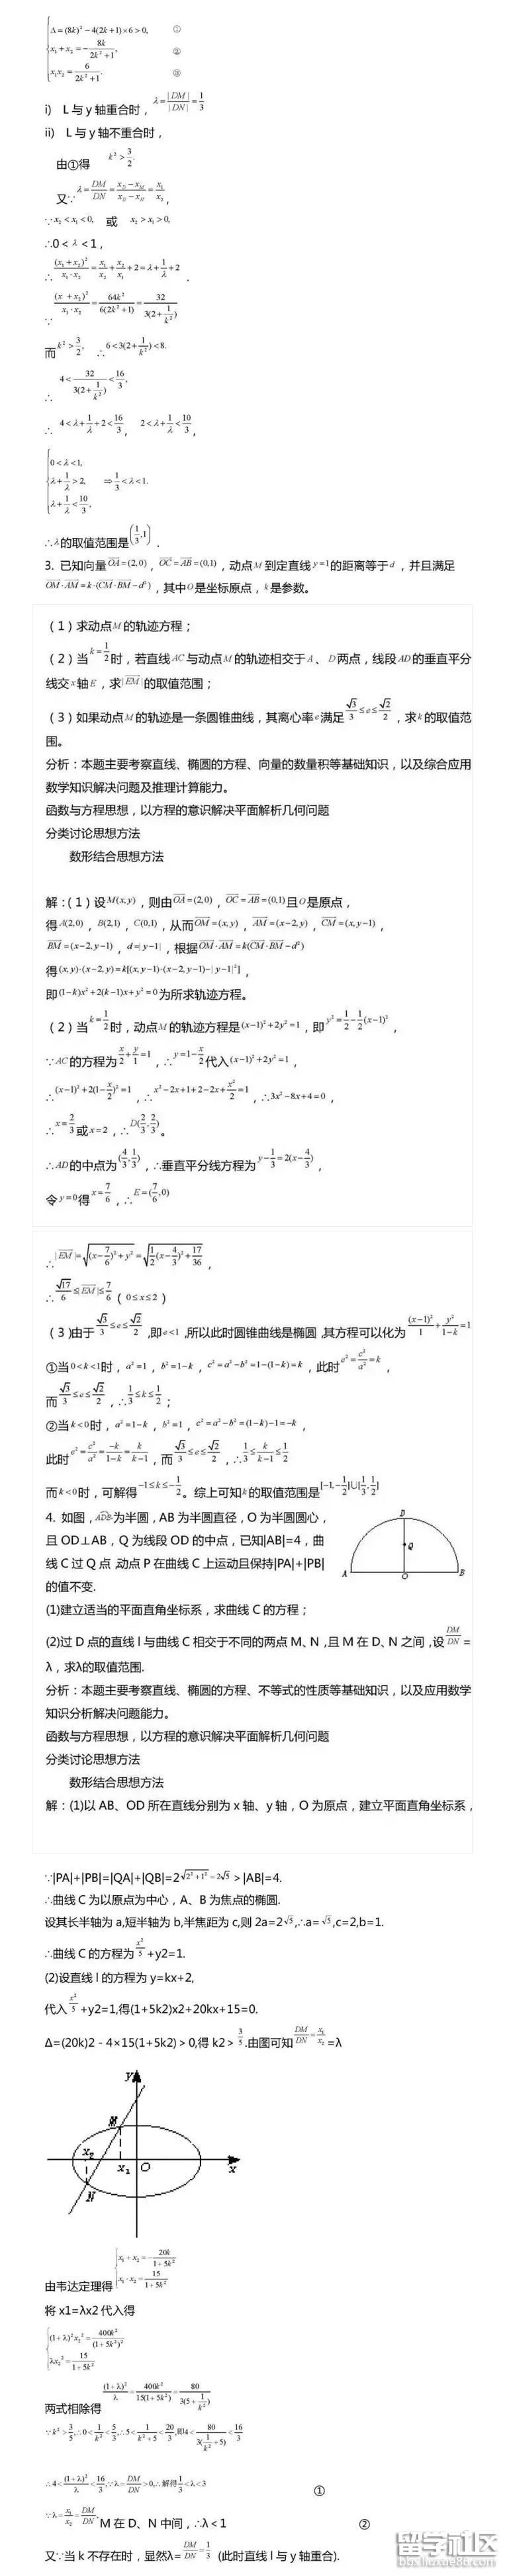 Δ=(8k)²-4(2k+1)×6>0, ①
x₁+x₂=-8k/(2k²+1), ②
x₁x₂=6/(2k²+1). ③
i) L与y轴重合时，λ=|DM|/|DN|=1/3
ii) L与y轴不重合时，
由①得 k²>3/2.
又∵λ=DM/DN=(x_D-x_M)/(x_D-x_N)=x₁/x₂,
∵x₂<x₁<0, 或 x₂>x₁>0,
∴0<λ<1，
∴(x₁+x₂)²/(x₁·x₂)=x₁/x₂+x₂/x₁+2=λ+1/λ+2 .
∵(x+x₂)²/(x₁·x₂)=64k²/(6(2k²+1))=32/(3(2+1/k²))
而k²>3/2, ∴6<3(2+1/k²)<8.
∴4<32/(3(2+1/k²))<16/3,
∴4<λ+1/λ+2<16/3, 2<λ+1/λ<10/3,
0<λ<1,
λ+1/λ>2, ⇒1/3<λ<1.
λ+1/λ<10/3,
∴λ的取值范围是(1/3,1) .
3. 已知向量OA=(2,0)，OC=AB=(0,1)，动点M到定直线y=1的距离等于d，并且满足
OM·AM=k·(CM·BM-d²)，其中O是坐标原点，k是参数。
（1）求动点M的轨迹方程；
（2）当k=1/2时，若直线AC与动点M的轨迹相交于A、D两点，线段AD的垂直平分
线交x轴E，求|EM|的取值范围；
（3）如果动点M的轨迹是一条圆锥曲线，其离心率e满足√3/3≤e≤√2/2，求k的取值范
围。
分析：本题主要考察直线、椭圆的方程、向量的数量积等基础知识，以及综合应用
数学知识解决问题及推理计算能力。
函数与方程思想，以方程的意识解决平面解析几何问题
分类讨论思想方法
数形结合思想方法
解：（1）设M(x,y)，则由OA=(2,0)，OC=AB=(0,1)且O是原点，
得A(2,0)，B(2,1)，C(0,1)，从而OM=(x,y)，AM=(x-2,y)，CM=(x,y-1)，
BM=(x-2,y-1)，d=|y-1|，根据OM·AM=k(CM·BM-d²)
得(x,y)·(x-2,y)=k[(x,y-1)·(x-2,y-1)-|y-1|²]，
即(1-k)x²+2(k-1)x+y²=0为所求轨迹方程。
（2）当k=1/2时，动点M的轨迹方程是(x-1)²+2y²=1，即y²=1/2-1/2(x-1)²，
∵AC的方程为x/2+y/1=1，∴y=1-x/2代入(x-1)²+2y²=1，
∴(x-1)²+2(1-x/2)²=1，∴x²-2x+1+2-2x+x²/2=1，∴3x²-8x+4=0，
∴x=2/3或x=2，∴D(2/3,2/3)。
∴AD的中点为(4/3,1/3)，∴垂直平分线方程为y-1/3=2(x-4/3)，
令y=0得x=7/6，∴E=(7/6,0)
∴|EM|=√((x-7/6)²+y²)=√(1/2(x-4/3)²+17/36)，
∴√17/6≤|EM|≤7/6（0≤x≤2）
（3）由于√3/3≤e≤√2/2,即e<1,所以此时圆锥曲线是椭圆,其方程可以化为(x-1)²/1+y²/(1-k)=1
①当0<k<1时，a²=1，b²=1-k，c²=a²-b²=1-(1-k)=k，此时e²=c²/a²=k，
而√3/3≤e≤√2/2，∴1/3≤k≤1/2；
②当k<0时，a²=1-k，b²=1，c²=a²-b²=(1-k)-1=-k，
此时e²=c²/a²=-k/(1-k)=k/(k-1)，而√3/3≤e≤√2/2，∴1/3≤k/(k-1)≤1/2
而k<0时，可解得-1≤k≤-1/2。综上可知k的取值范围是[-1,-1/2]∪[1/3,1/2]
4. 如图，ADB为半圆，AB为半圆直径，O为半圆圆心，
且OD⊥AB，Q为线段OD的中点，已知|AB|=4，曲
线C过Q点,动点P在曲线C上运动且保持|PA|+|PB|
的值不变.
D
Q
A
O
B
(1)建立适当的平面直角坐标系，求曲线C的方程；
(2)过D点的直线l与曲线C相交于不同的两点M、N,且M在D、N之间,设DM/DN=
λ，求λ的取值范围.
分析：本题主要考查直线、椭圆的方程、不等式的性质等基础知识，以及应用数学
知识分析解决问题能力。
函数与方程思想，以方程的意识解决平面解析几何问题
分类讨论思想方法
数形结合思想方法
解：(1)以AB、OD所在直线分别为x轴、y轴，O为原点，建立平面直角坐标系，
∵|PA|+|PB|=|QA|+|QB|=2√(2²+1²)=2√5＞|AB|=4.
∴曲线C为以原点为中心，A、B为焦点的椭圆.
设其长半轴为a,短半轴为b,半焦距为c,则2a=2√5,∴a=√5,c=2,b=1.
∴曲线C的方程为x²/5+y2=1.
(2)设直线l的方程为y=kx+2,
代入x²/5+y2=1,得(1+5k2)x2+20kx+15=0.
Δ=(20k)2﹣4×15(1+5k2)＞0,得k2＞3/5.由图可知DM/DN=x₁/x₂=λ
y
M
x₂
x₁
O
x
N
由韦达定理得
x₁+x₂=-20k/(1+5k²)
x₁·x₂=15/(1+5k²)
将x1=λx2代入得
(1+λ)²x₂²=400k²/(1+5k²)²
λx₂²=15/(1+5k²)
两式相除得(1+λ)²/λ=400k²/(15(1+5k²))=80/(3(5+1/k²))
∵k²>3/5,∴0<1/k²<5/3,∴5<1/k²+5<20/3,即4<80/(3(1/k²+5))<16/3
∴4<(1+λ)²/λ<16/3,∵λ=DM/DN>0,∴解得1/3<λ<3 ①
∵λ=x₁/x₂=DM/DN,M在D、N中间，∴λ＜1 ②
又∵当k不存在时，显然λ=DM/DN=1/3 (此时直线l与y轴重合).
留学社区
bbs.liuxue86.com